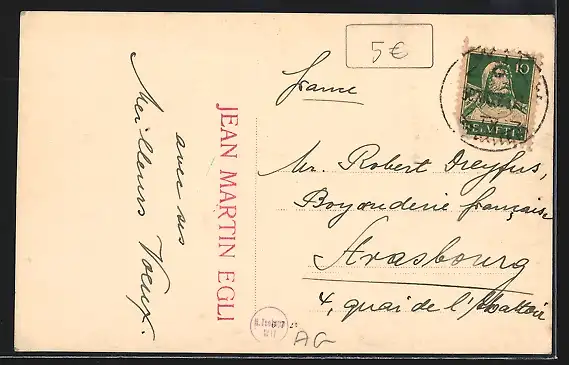 5 €
10
HELVETIA
France
Mr. Robert Dreyfus,
Boyauderie française
Strasbourg
4, quai de l'Abattoir
JEAN MARTIN EGLI
avec ses
Meilleurs Voeux.
AG